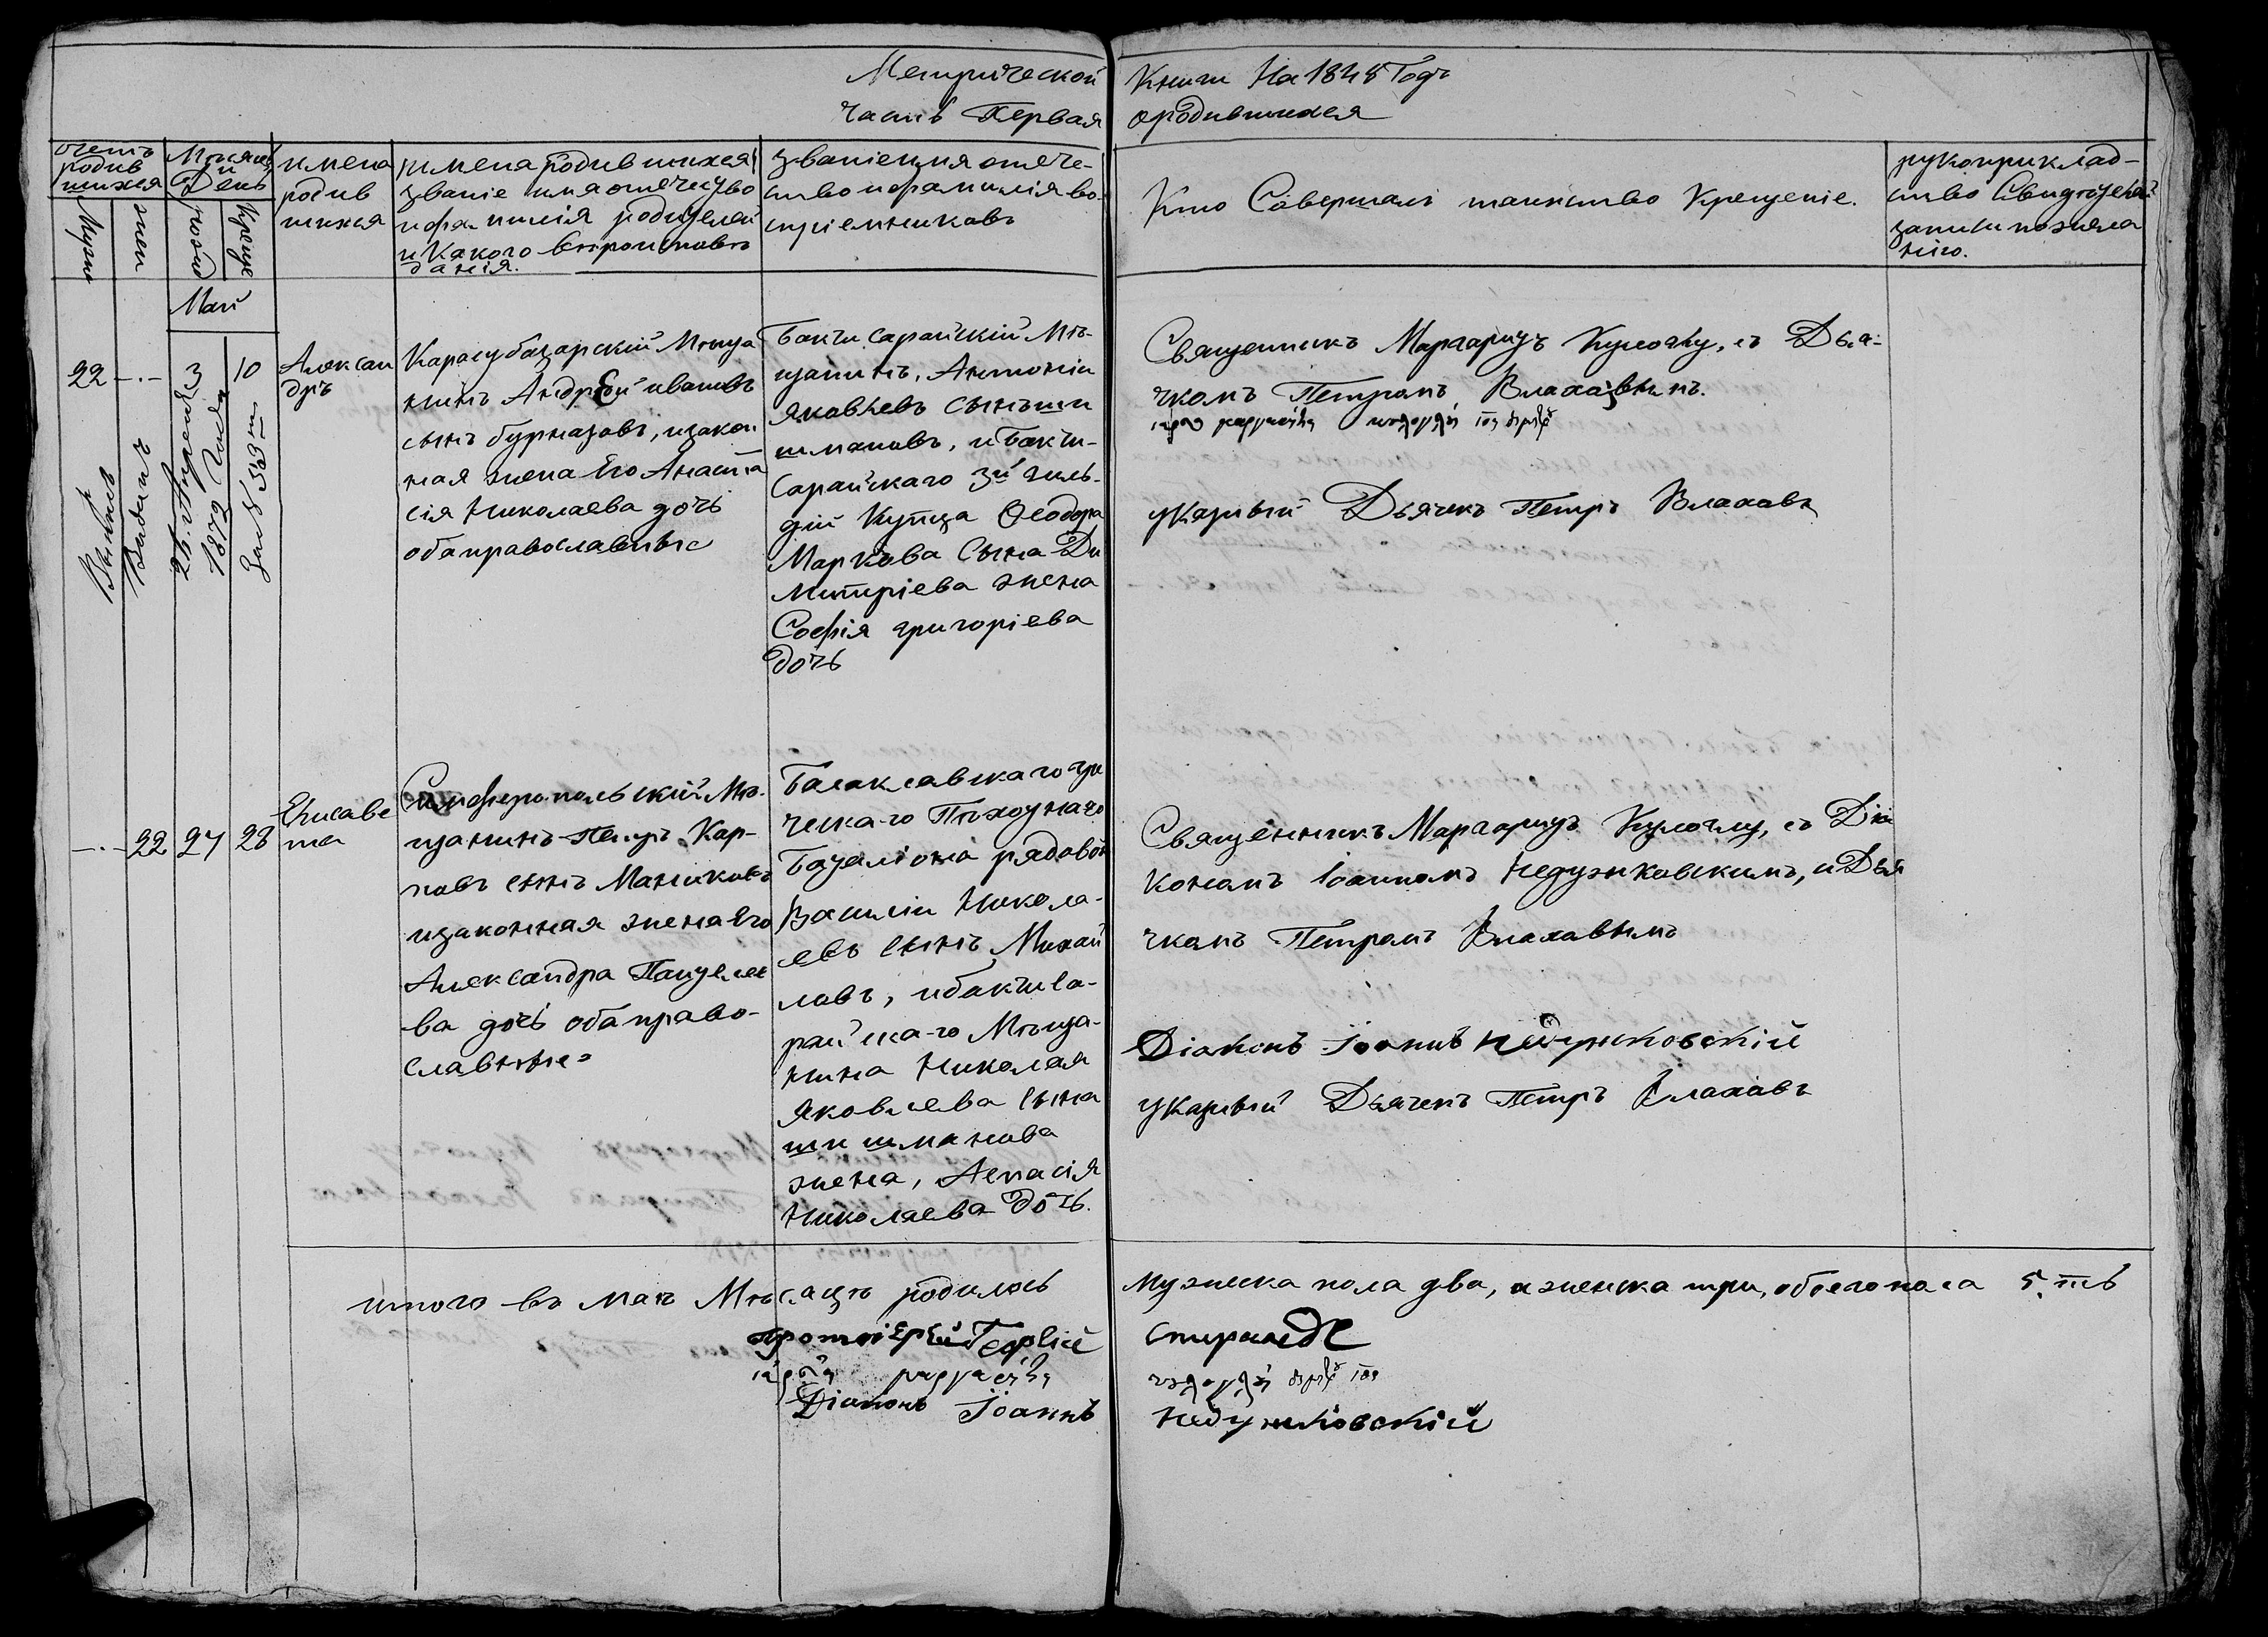 Метрической Книги На 1848 Годъ
Часть Первая о родившихся
счетъ родив шихся
Мужес
жен
Мѣсяцъ и День
рожд
Креще
имена родив шихся
имена родившихся
званіе имя отечество
и фамилія родителей
и Какого вѣроисповѣ
данія.
званіе имя отече-
ство и фамилія во-
спріемниковъ
Кто Совершалъ таинство Крещеніе.
рукоприклад-
ство Свидѣтелей
записи по жела
нію.
Май
22 -.- 3 10
Алексан
дръ
Карасубазарскій Мѣща
нинъ Андрей ивановъ
сынъ бурназовъ, изакон
ная жена Его Анаста
сія Николаева дочь
оба православные
Бакчисарайскій Мѣ-
щанинъ, Антоній
яковлевъ Сынъ ши
шмановъ, и Бакчи-
сарайскаго 3й гиль-
діи Купца Ѳеодора
Маркова Сына Ди
митріева жена
Софія григоріева
дочь
Священникъ Маргаритъ Кулочлу, съ Дья-
чкомъ Петромъ Влаховымъ.
указный Дьячекъ Петръ Влаховъ
Выпись
Выданъ
26. Апреля
1879 Года
За № 533 м
-.- 22 27 28
Елисаве
та
Симферопольскій Мѣ-
щанинъ Петръ Кар-
повъ сынъ Маниковъ
изаконная жена Его
Александра Пантелее
ва дочь оба право-
славные
Балаклавскаго гре
ческаго Пѣхотнаго
Баталіона рядовой
Василій Никола-
евъ сынъ Михай
ловъ, и бакчиса-
райскаго Мѣща-
нина Николая
яковлева сына
шишманова
жена, Аспасія
Николаева дочь.
Священникъ Маргаритъ Кулочлу, съ Діа
кономъ Іоанномъ Недужковскимъ, и Дья
чкомъ Петромъ Влаховымъ
Діаконъ Іоаннъ Недужковскій
указный Дьячекъ Петръ Влаховъ
итого въ маѣ Мѣсяцѣ родилось мужеска пола два, и женска три, обоего пола 5.ть
протоіерей Спиранде
Діаконъ Іоаннъ Недужковскій